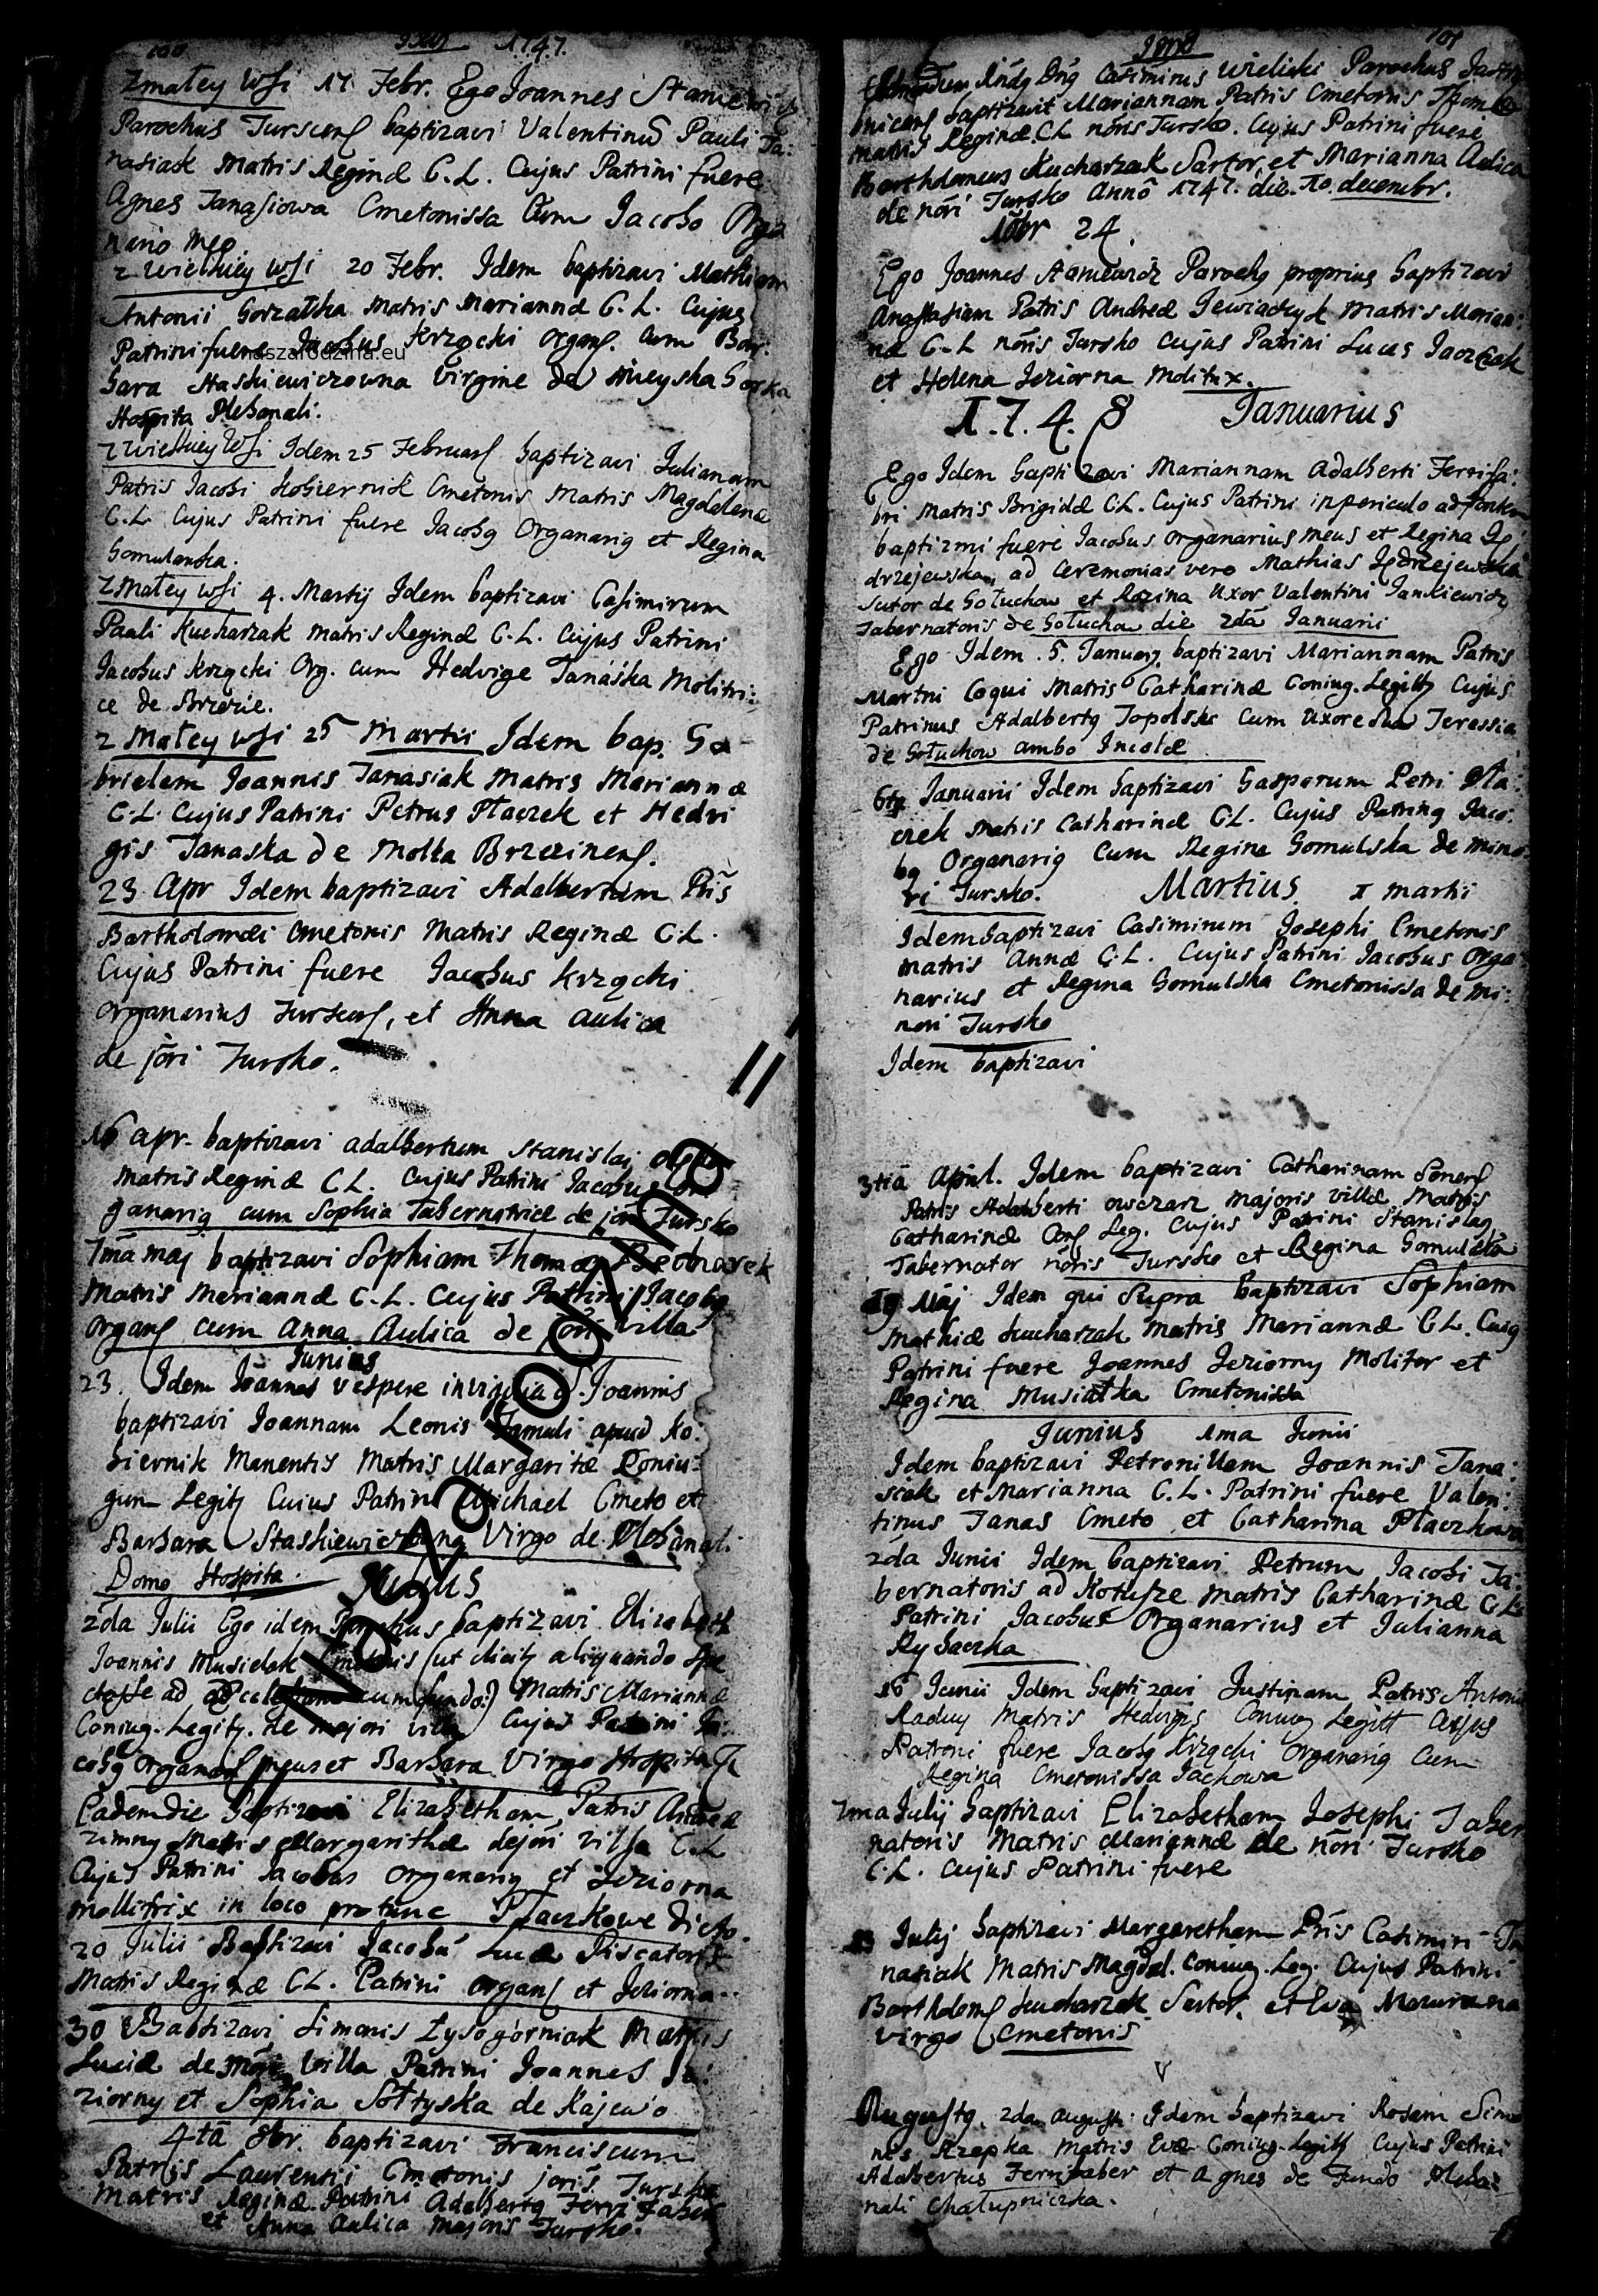 1747.
Zmałey Wsi 17 Febr. Ego Joannes
Parochus baptizavi Valentinū Pauli Ta:
nasiak Matris Reginæ C. L. Cujus Patrini fuere
Agnes Tanasiowa Cmetonissa Cum Jacobo Orga
nario meo.
z Wielkiey Wsi 20 Febr. Idem baptizavi Mathiam
Antonii Gorzałka Matris Mariannæ C. L. Cujus
Patrini fuere Jacobus Krzącki Cum Bar:
bara Staskiewiczowna Virgine de
Hospita Plebanali.
z Wielkiey Wsi Idem 25 baptizavi Julianam
Patris Jacobi Kobiernik Cmetonis Matris Magdalenæ
C. L. Cujus Patrini fuere Jacobg Organarig et Regina
Gomulanka.
Zmałey Wsi 4. Martij Idem baptizavi Casimirum
Pauli Kucharzak Matris Reginæ C. L. Cujus Patrini
Jacobus Krzącki Org. cum Hedvige Tanaśka Molitri:
ce de Brzezie.
z Małey wsi 25 Martii Idem bap. Ga
brielem Joannis Tanasiak Matris Mariannæ
C. L. Cujus Patrini Petrus Płaczek et Hedvi
gis Tanaska de Molta
23 Apr Idem baptizavi Adalbertum Pris
Bartholomæi Cmetonis Matris Reginæ C. L.
Cujus Patrini fuere Jacobus Krzącki
Organarius et Anna Aulica
de jōri Tursko.
16 apr. baptizavi adalbertum Stanislai
Matris Reginæ C L. Cujus Patrini Jacobus or
ganarig cum Sophia Tabernatrice de jōri Tursko
7mā maj baptizavi Sophiam Thomæ Bednarek
Matris Mariannæ C. L. Cujus Patrini Jacobg
cum Anna Aulica de jōri villa
Junius
23. Idem Joannes vespere in vigilia S. Joannis
baptizavi Joannam Leonis Famuli apud Ko:
biernik Manentis Matris Margaritæ Coniu:
gum Legit. Cuius Patrini Michael Cmeto et
Barbara Staskiewiczowna Virgo de Plebanali
Domo Hospita.
Julius
2da Julii Ego idem Parochus baptizavi
Joannis Musielak Cmetonis (ut dicit aliquando
Matris Mariannæ
Coniug. Legit. de majori villa Cujus Patrini Ja:
cobg meus et Barbara Virgo Hospita
Eadem die baptizavi Elizabetham Patris Andreæ
Zimny Matris Margarithæ de jōri Villa C. L
Cujus Patrini Jacobus Organarig et Jeziorna
mollitrix in loco pro tunc Płaczkowe dicto.
20 Julii Baptizavi Jacobū Lucæ Piscatoris
Matris Reginæ C L. Patrini et Jeziorna
30 Babtizavi Simonis Łysogórniak Matris
Luciæ de Villa Patrini Joannes Je:
ziorny et Sophia Sołtyska de Kajewo
4tā baptizavi Franciscum
Patris Laurentii Cmetonis jōris Tursko
Matris Reginæ Patrini Adalbertg Ferri Faber
et Anna Aulica Majoris Tursko.
naszarodzina.eu
Nasza rodzina II
101
Casimirus Wielicki Parochus
baptizavit Mariannam Patris Cmetonis
matris Reginæ C. L nōris Tursko. Cujus Patrini fuere
Bartholomeus Kucharzak Sartor, et Marianna Aulica
de nōri Tursko Annō 1747. die. 10. decembr.
10br 24.
Ego Joannes Parochg proprius baptizavi
Anastasiam Patris Andreæ Matris Marian:
næ C. L nōris Tursko Cujus Patrini Lucas
et Helena Jeziorna Molitrix.
1.7.4.8 Januarius
Ego Idem baptizavi Mariannam Adalberti Ferrifa:
bri Matris Brigidæ C L. Cujus Patrini in periculo ad fontem
baptizmi fuere Jacobus organarius meus et Regina Ję
drzejewska, ad ceremonias vero Mathias Jędrzejewski
Sutor de Gołuchow et Rozina Uxor Valentini Jankiewicz
Tabernatoris de Gołuchow die 2dā Januarii
Ego Idem . 5. January baptizavi Mariannam Patris
Martini Coqui Matris Catharinæ Coniug. Legitt Cujus
Patrinus Adalbertg Topolski Cum Uxore sua Teressia
de Gołuchow ambo Incolæ
6ta Januarii Idem baptizavi Gasparum Petri Pła:
czek Matris Catharinæ C L. Cujus Patring Jaco:
bg Organarig Cum Regina Gomulska de mino
ri Tursko. Martius. 1 martii
Idem baptizavi Casimirum Josephi Cmetonis
Matris Annæ C. L. Cujus Patrini Jacobus Orga
narius et Regina Gomulska Cmetonissa de mi:
nori Tursko
Idem baptizavi
3tiā April. Idem baptizavi Catharinam
Patris Adalberti owczarz majoris villæ Matris
Catharinæ Leg. Cujus Patrini Stanislag
Tabernator nōris Tursko et Regina
Maj Idem qui Supra baptizavi Sophiam
Mathiæ Kucharzak Matris Mariannæ C L. Cuig
Patrini fuere Joannes Jeziorny Molitor et
Regina Musiałka Cmetonissa
Junius 1ma Junii
Idem baptizavi Petronillam Joannis Tana:
siak et Marianna C. L. Patrini fuere Valen:
tinus Tanas Cmeto et Catharina Płaczkowa
2da Junii Idem baptizavi Petrum Jacobi Ta:
bernatoris ad Kotusze Matris Catharinæ C L
Patrini Jacobus Organarius et Julianna
Rybaczka
16 Junii Idem baptizavi Justinam Patris Antonii
Raduy Matris Hedvigis Coniug Legitt Cujus
Patroni fuere Jacobg Krzącki Organarig Cum
Regina Cmetonissa Jachowa
7ma Julij baptizavi Elizabetham Josephi Taber
natoris Matris Mariannæ de nōri Tursko
C. L. Cujus Patrini fuere
Julij baptizavi Margaretham Pris Casimiri Ta
nasiak Matris Magdal. Coniug. Leg. Cujus Patrini
Kucharzak Sartor, et Eva
virgo Cmetonis
Augustg. 2da Idem baptizavi Rosam Simo
nis Rzepka Matris Evæ Coniug. Legitt Cujus Patrini
Adalbertus Ferrifaber et Agnes de Fundo Pleba:
nali Chałupniczka.